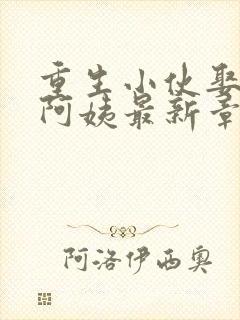 重生小伙娶
阿姨最新章
阿洛伊西奥